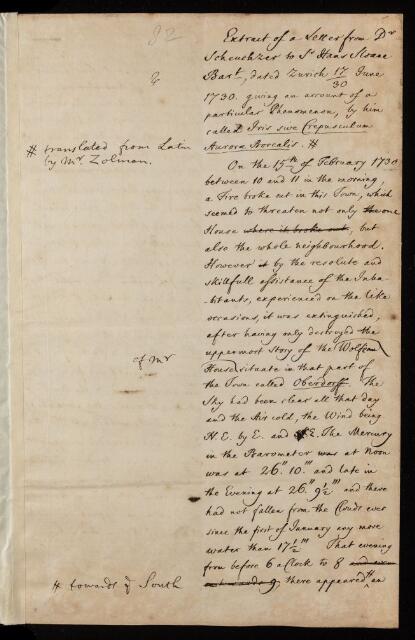 92
Extract of a Letter from Dr
Scheuchzer to Sr Hans Sloane
Bart, dated Zurich 17/30 June
1730. giving an account of a
particular Phenomenon, by him
called Iris sive Crepusculum
Aurora Borealis. #
# translated from Latin
by Mr. Zolman.
On the 15th of February 1730
between 10 and 11 in the morning,
a Fire broke out in this Town, which
seemed to threaten not only the one
House where it broke out, but
also the whole neighbourhood.
However it by the resolute and
skillfull assistance of the Inha-
-bitants, experienced on the like
occasions, it was extinguished,
after having only destroyed the
uppermost Story of the
of Mr
House situate in that part of
the Town called Oberdorff. The
Sky had been clear all that day
and the Air cold, the Wind being
N.E. by E. and E. The Mercury
in the Barometer was at Noon
was at 26." 10."' and late in
the Evening at 26." 9 1/2 "' and there
had not fallen from the Clouds ever
since the first of January any more
water than 17 1/2 "' That evening
from before 6 a Clock to 8
9, there appeared # an
# towards ye South